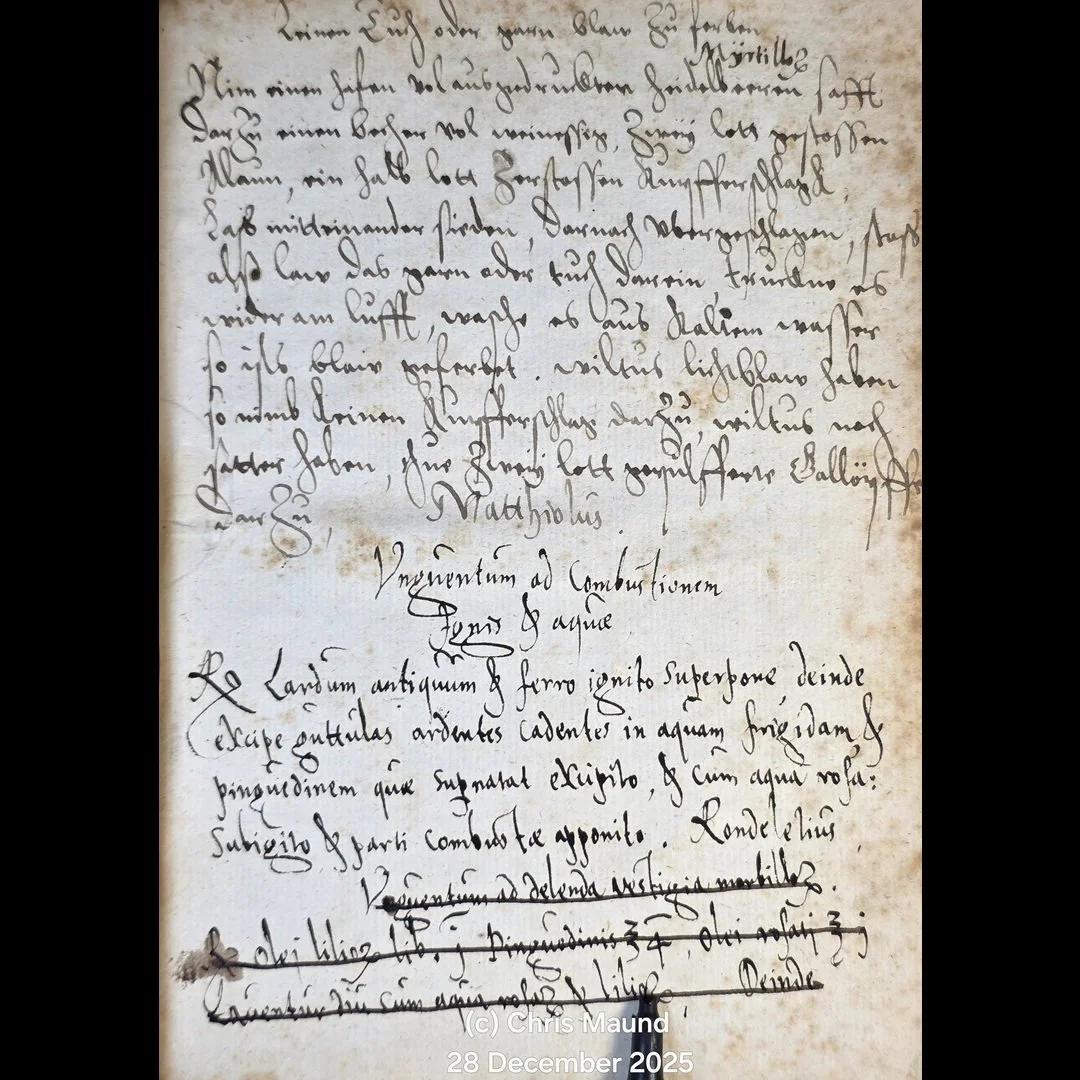 Leinen Tuch oder garn blaw Zu ferben
Myrtilloꝝ
Nim einen hafen vol ausgedruckten heidelbeeren safft
darzu einen becher vol weinessig, Zweÿ lott gestossen
Alaun, ein halb lott Zerstossen Kupfferschlagk,
Las mitteinander sieden, darnach vbergeschlagen, stoss
also law das garn oder tuch darein, truckne es
wider am lufft, wasche es aus Kaltem wasser
so ists blaw geferbet. wiltus lichtblaw haben
so nimb keinen Kupfferschlag darZu, wiltus noch
satter haben, thue Zweÿ lott gepulfferte Gallöpffe
darZu, Matthiolus.
Vnguentum ad Combustionem
Ignis & aquæ
℞ Lardum antiquum & ferro ignito Superpone deinde
excipe guttulas ardentes Cadentes in aquam frigidam &
pinguedinem quæ supnatat excipito, & Cum aqua rosa:
Subigito & parti Combustæ apponito. Rondeletius
Vnguentum ad delenda vestigia morbilloꝝ.
℞ olej lilioꝝ lib. j Pinguedinis ʒ 4, Olei rosati ʒ j
Laventur diu cum aqua rosaꝝ & lilioꝝ, Deinde
(c) Chris Maund
28 December 2025